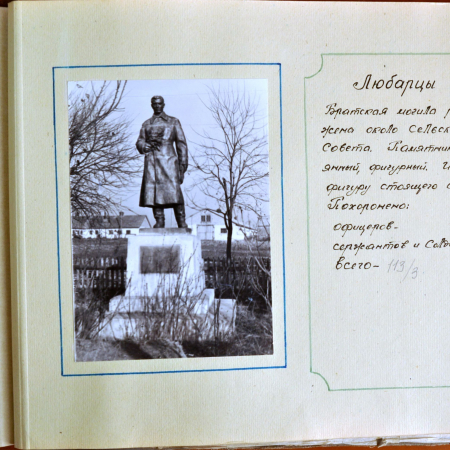 Любарцы
Братская могила р
жена около Сельск
Совета. Памятник
янный, фигурный. И
фигуру стоящего с
Похоронено:
офицеров-
сержантов и солд
всего- 113/3